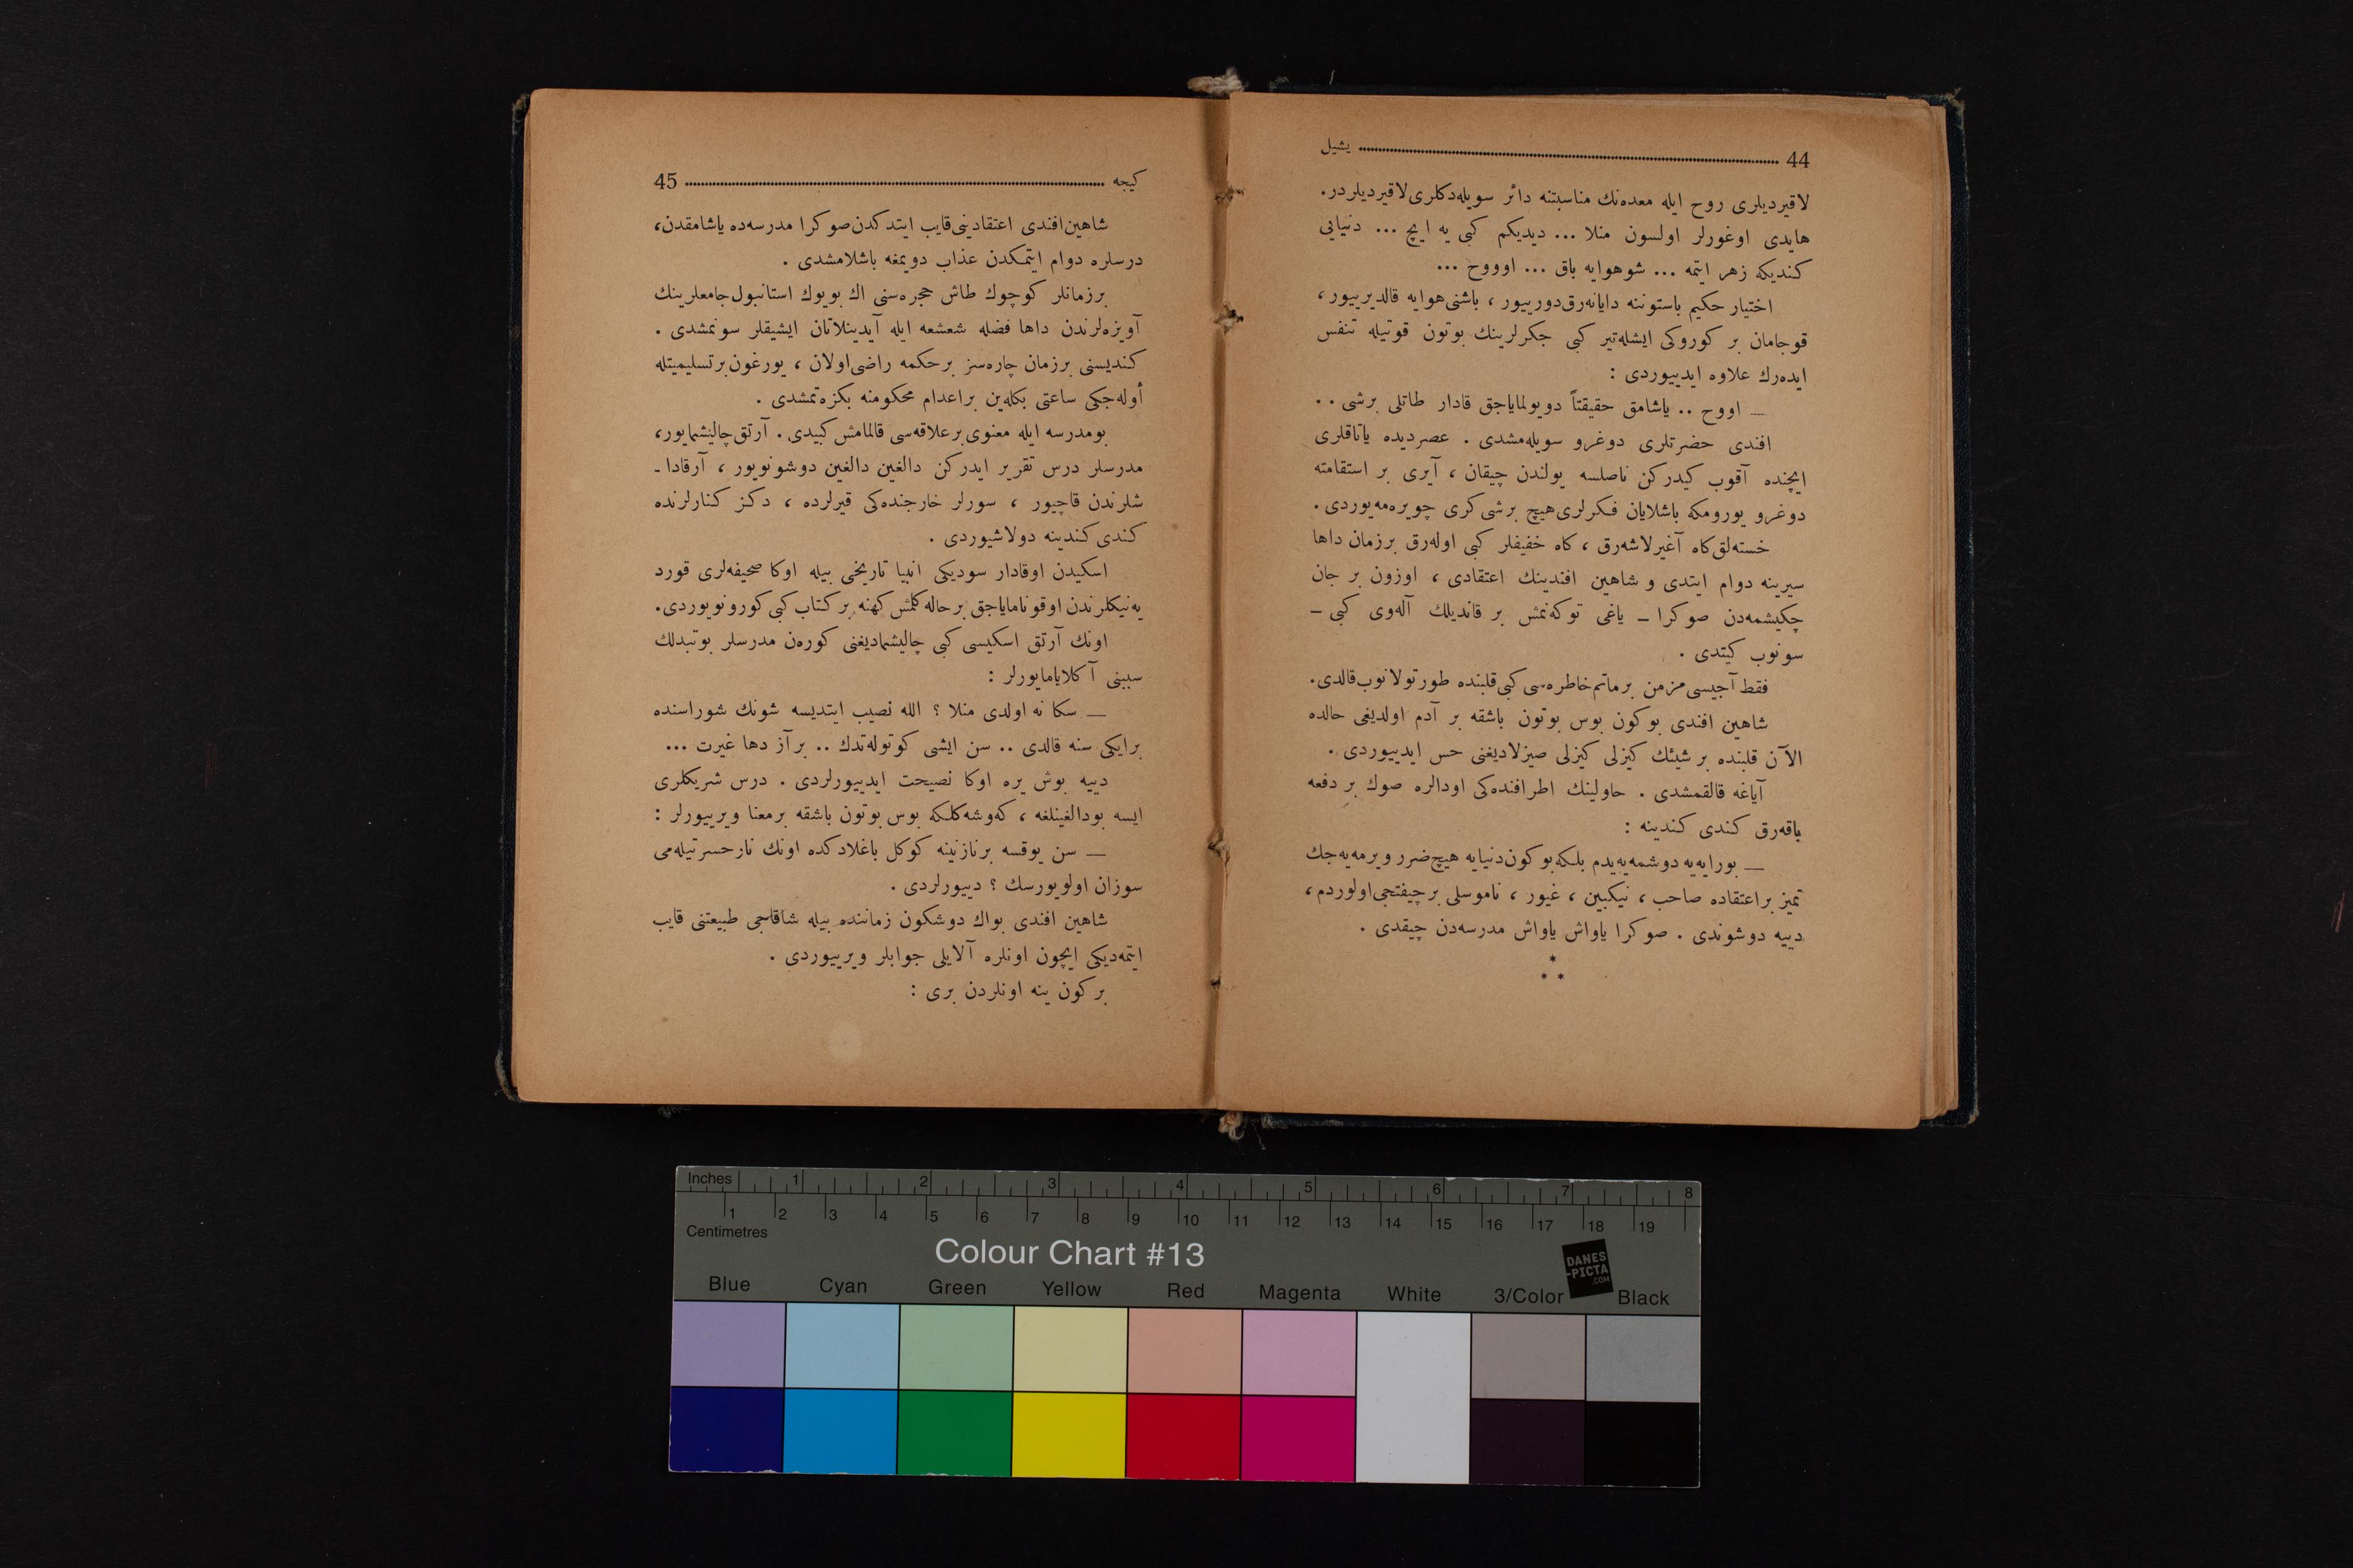 44 يشيل
لاقيرديلرى روح ايله معده‌نك مناسبتنه دائر سويله‌دكلرى لاقيرديلردر.
هايدى اوغورلر اولسون منلا ... ديديكم كبى يه ايچ ... دنيايى
كنديكه زهر ايتمه ... شو هوايه باق ... اوووح ...
اختيار حكيم باستوننه دايانه‌رق دورييور ، باشنى هوايه قالديرييور ،
قوجامان بر كوروكى ايشله‌تير كبى جكرلرينك بوتون قوتيله تنفس
ايده‌رك علاوه ايدييوردى :
— اووح .. ياشامق حقيقتاً دويولماياجق قادار طاتلى برشى . .
افندى حضرتلرى دوغرو سويله‌مشدى . عصرديده ياتاقلرى
ايچنده آقوب كيدركن ناصلسه يولندن چيقان ، آيرى بر استقامته
دوغرو يورومكه باشلايان فكرلرى هيچ برشى كرى چويره‌مه‌يوردى .
خسته‌لق كاه آغيرلاشه‌رق ، كاه خفيفلر كبى اوله‌رق برزمان داها
سيرينه دوام ايتدى و شاهين افندينك اعتقادى ، اوزون بر جان
چكيشمه‌دن صوكرا — ياغى توكه‌نمش بر قانديلك آله‌وى كبى —
سونوب كيتدى .
فقط آجيسى مزمن برماتم خاطره‌سى كبى قلبنده طورتولانوب قالدى.
شاهين افندى بوكون بوس بوتون باشقه بر آدم اولديغى حالده
الآن قلبنده بر شيئك كيزلى كيزلى صيزلاديغنى حس ايدييوردى .
آياغه قالقمشدى . حاولينك اطرافنده‌كى اودالره صوك بر دفعه
باقه‌رق كندى كندينه :
— بورايه‌يه دوشمه‌يه‌يدم بلكه بوكون دنيايه هيچ ضرر ويرمه‌يه‌جك
تميز براعتقاده صاحب ، نيكبين ، غيور ، ناموسلى برچيفتجى اولوردم ،
دييه دوشوندى . صوكرا ياواش ياواش مدرسه‌دن چيقدى .
*
* *
كيجه 45
شاهين افندى اعتقادينى قايب ايتدكدن صوكرا مدرسه‌ده ياشامقدن،
درسلره دوام ايتمكدن عذاب دويمغه باشلامشدى .
برزمانلر كوچوك طاش حجره‌سنى اك بويوك استانبول جامعلرينك
آويزه‌لرندن داها فضله شعشعه ايله آيدينلاتان ايشيقلر سونمشدى .
كنديسنى برزمان چاره‌سز برحكمه راضى اولان ، يورغون برتسليميتله
أوله‌جكى ساعتى بكله‌ين براعدام محكومنه بكزه‌تمشدى .
بومدرسه ايله معنوى برعلاقه‌سى قالمامش كبيدى . آرتق چاليشمايور،
مدرسلر درس تقرير ايدركن دالغين دالغين دوشونويور ، آرقادا-
شلرندن قاچيور ، سورلر خارجنده‌كى قيرلرده ، دكز كنارلرنده
كندى كندينه دولاشيوردى .
اسكيدن اوقادار سوديكى انبيا تاريخى بيله اوكا صحيفه‌لرى قورد
يه‌نيكلرندن اوقوناماياجق برحاله كلمش كهنه بركتاب كبى كورونويوردى.
اونك آرتق اسكيسى كبى چاليشماديغنى كوره‌ن مدرسلر بوتبدلك
سببنى آكلايامايورلر :
— سكا نه اولدى منلا ؟ الله نصيب ايتديسه شونك شوراسنده
برايكى سنه قالدى .. سن ايشى كوتوله‌تدك .. برآز دها غيرت ...
دييه بوش يره اوكا نصيحت ايدييورلردى . درس شريكلرى
ايسه بودالغينلغه ، كه‌وشه‌كلكه بوس بوتون باشقه برمعنا ويرييورلر :
— سن يوقسه برنازنينه كوكل باغلادكده اونك نارحسرتيله‌مى
سوزان اولويورسك ؟ دييورلردى .
شاهين افندى بواك دوشكون زماننده بيله شاقاجى طبيعتنى قايب
ايتمه‌ديكى ايچون اونلره آلايلى جوابلر ويرييوردى .
بركون ينه اونلردن برى :
Inches 1 2 3 4 5 6 7 8
1 2 3 4 5 6 7 8 9 10 11 12 13 14 15 16 17 18 19
Centimetres
Colour Chart #13
DANES
-PICTA
.COM
Blue Cyan Green Yellow Red Magenta White 3/Color Black